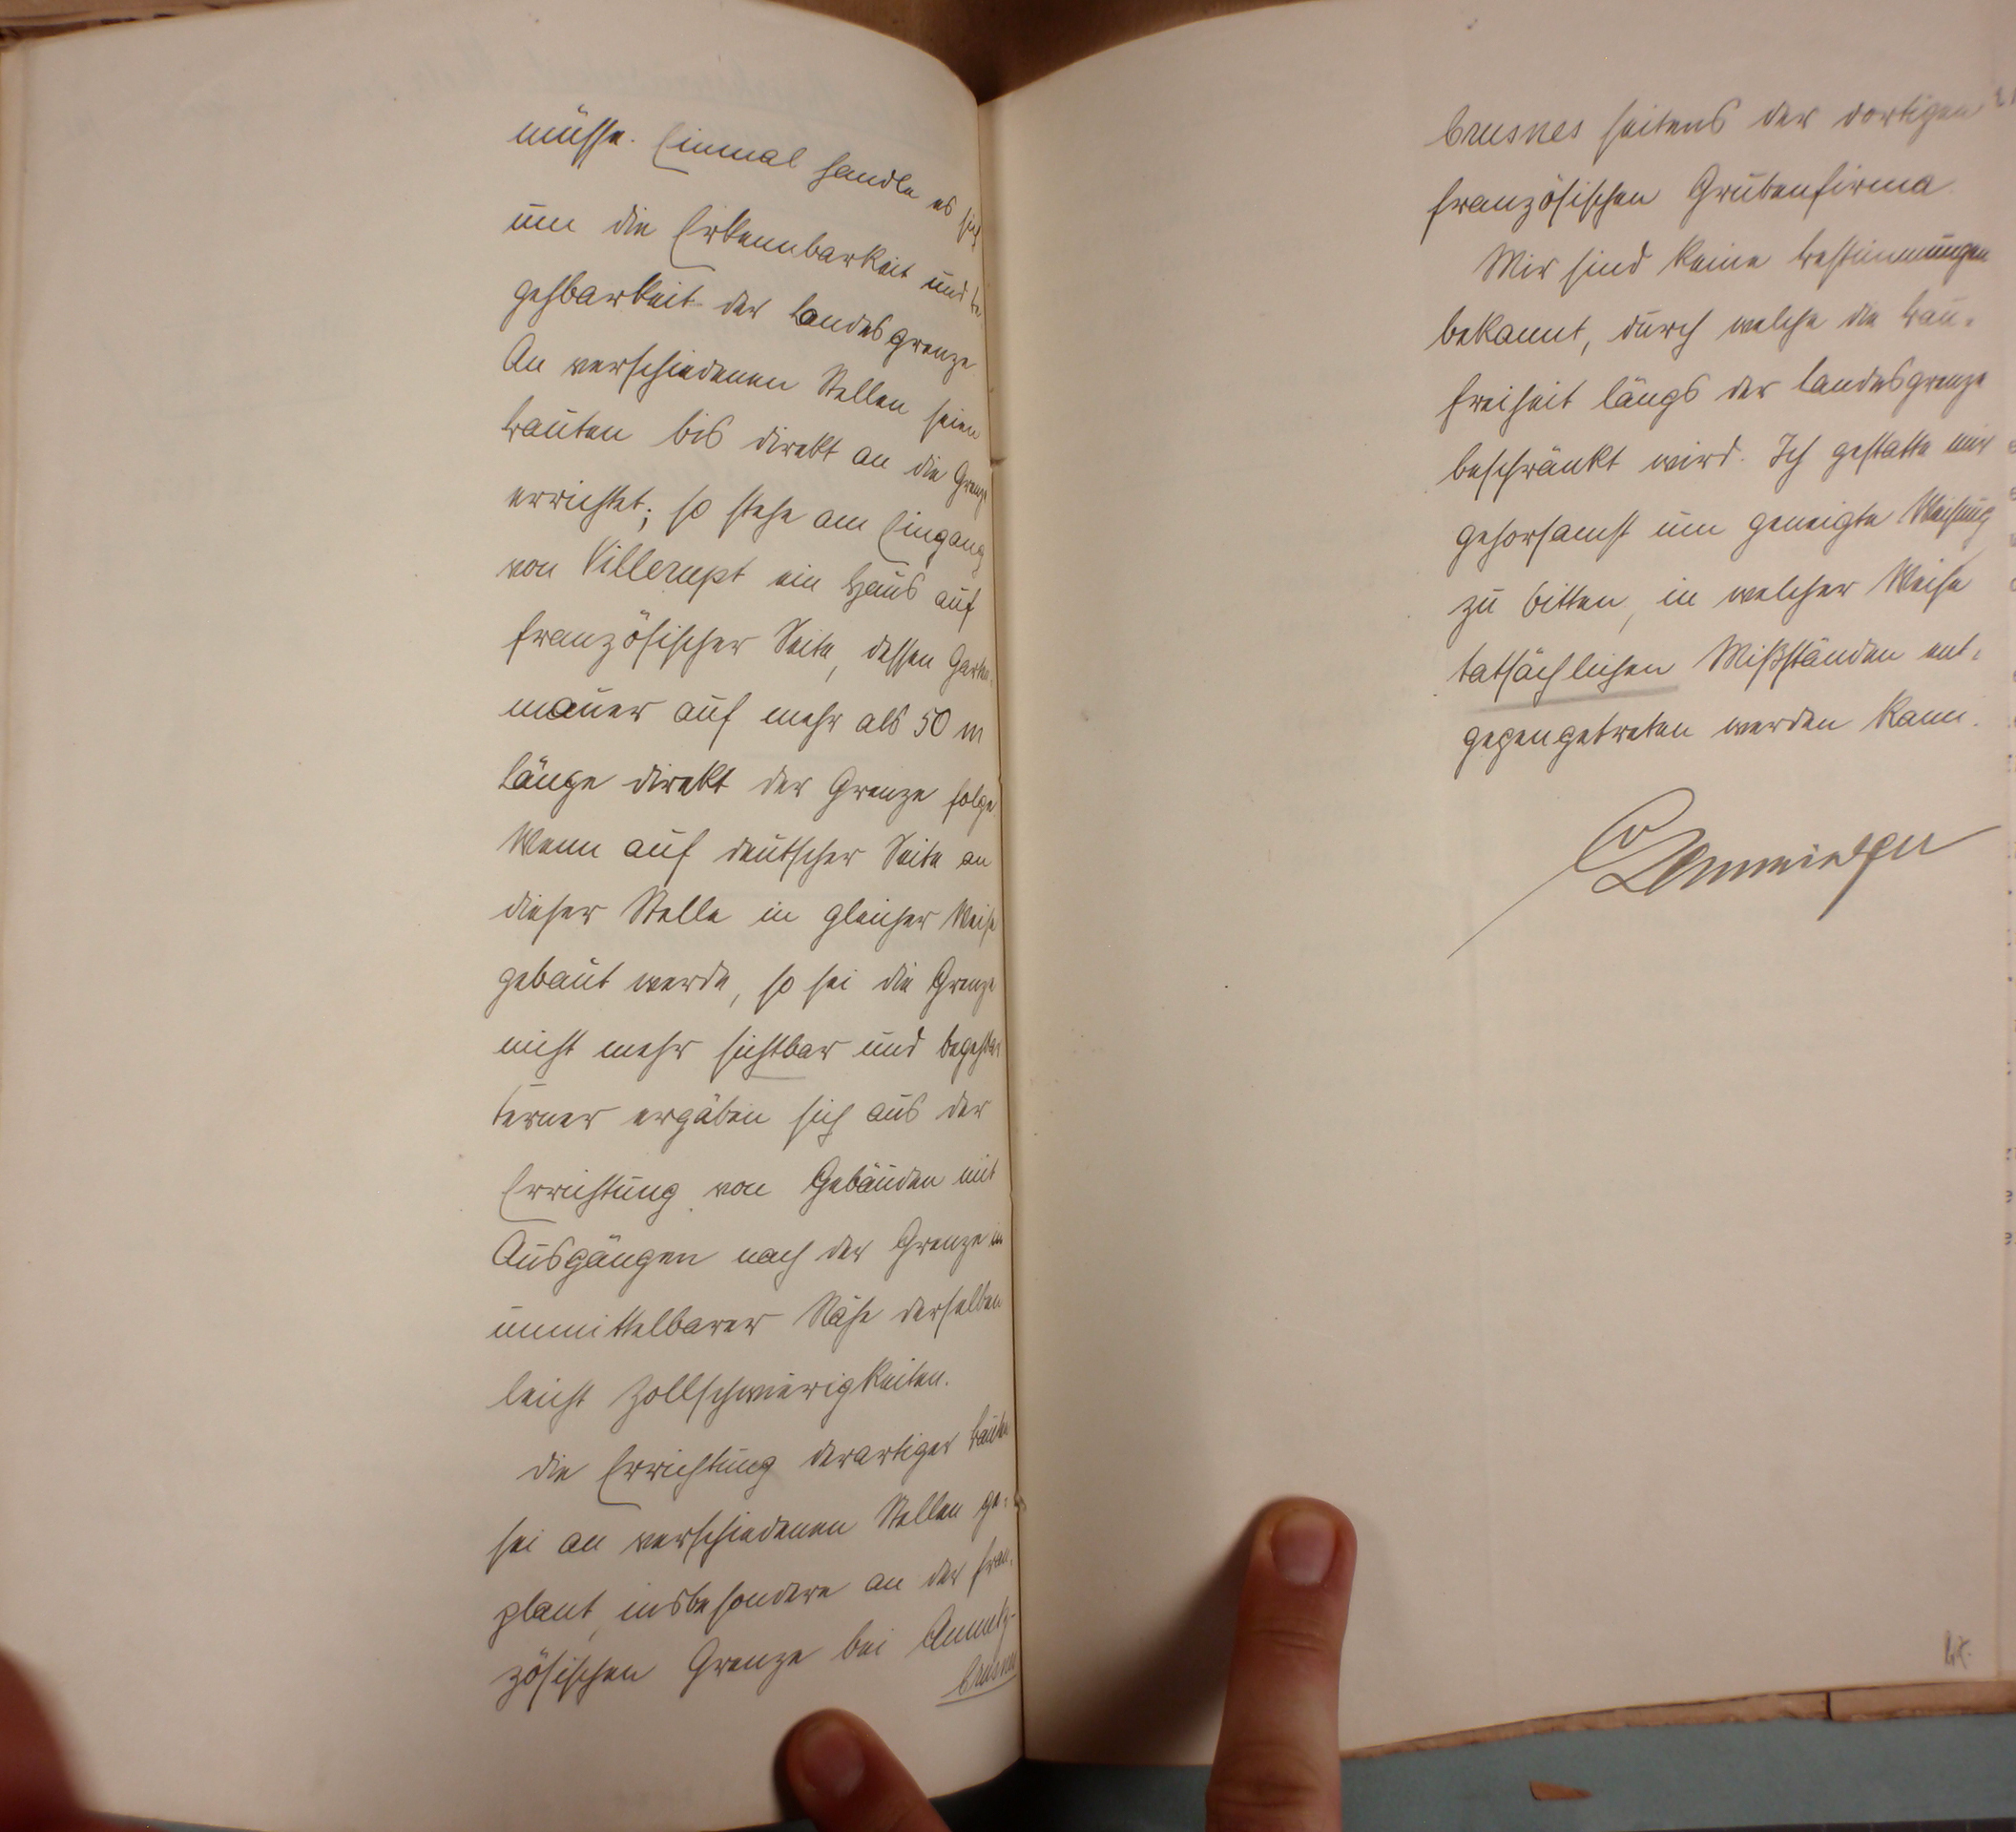 müsse. Einmal handle es sich
um die Erkennbarkeit und Be-
gehbarkeit der Landesgrenze.
An verschiedenen Stellen seien
Bauten bis direkt an die Grenze
errichtet; so stehe am Eingang
von Villerupt ein Haus auf
französischer Seite, dessen Garten-
mauer auf mehr als 50 m
Länge direkt der Grenze folge.
Wenn auf deutscher Seite an
dieser Stelle in gleicher Weise
gebaut werde, so sei die Grenze
nicht mehr sichtbar und begehbar
Ferner ergäben sich aus der
Errichtung von Gebäuden mit
Ausgängen nach der Grenze in
unmittelbarer Nähe derselben
leicht Zollschwierigkeiten.
Die Errichtung derartiger Bauten
sei an verschiedenen Stellen ge-
plant, insbesondere an der fran-
zösischen Grenze bei Aumetz-
Crusnes
Crusnes seitens der dortigen
französischen Grubenfirma.
Mir sind keine Bestimmungen
bekannt, durch welche die Bau-
freiheit längs der Landesgrenze
beschränkt wird. Ich gestatte mir
gehorsamst um geneigte Weisung
zu bitten, in welcher Weise
tatsächlichen Mißständen ent-
gegengetreten werden kann.